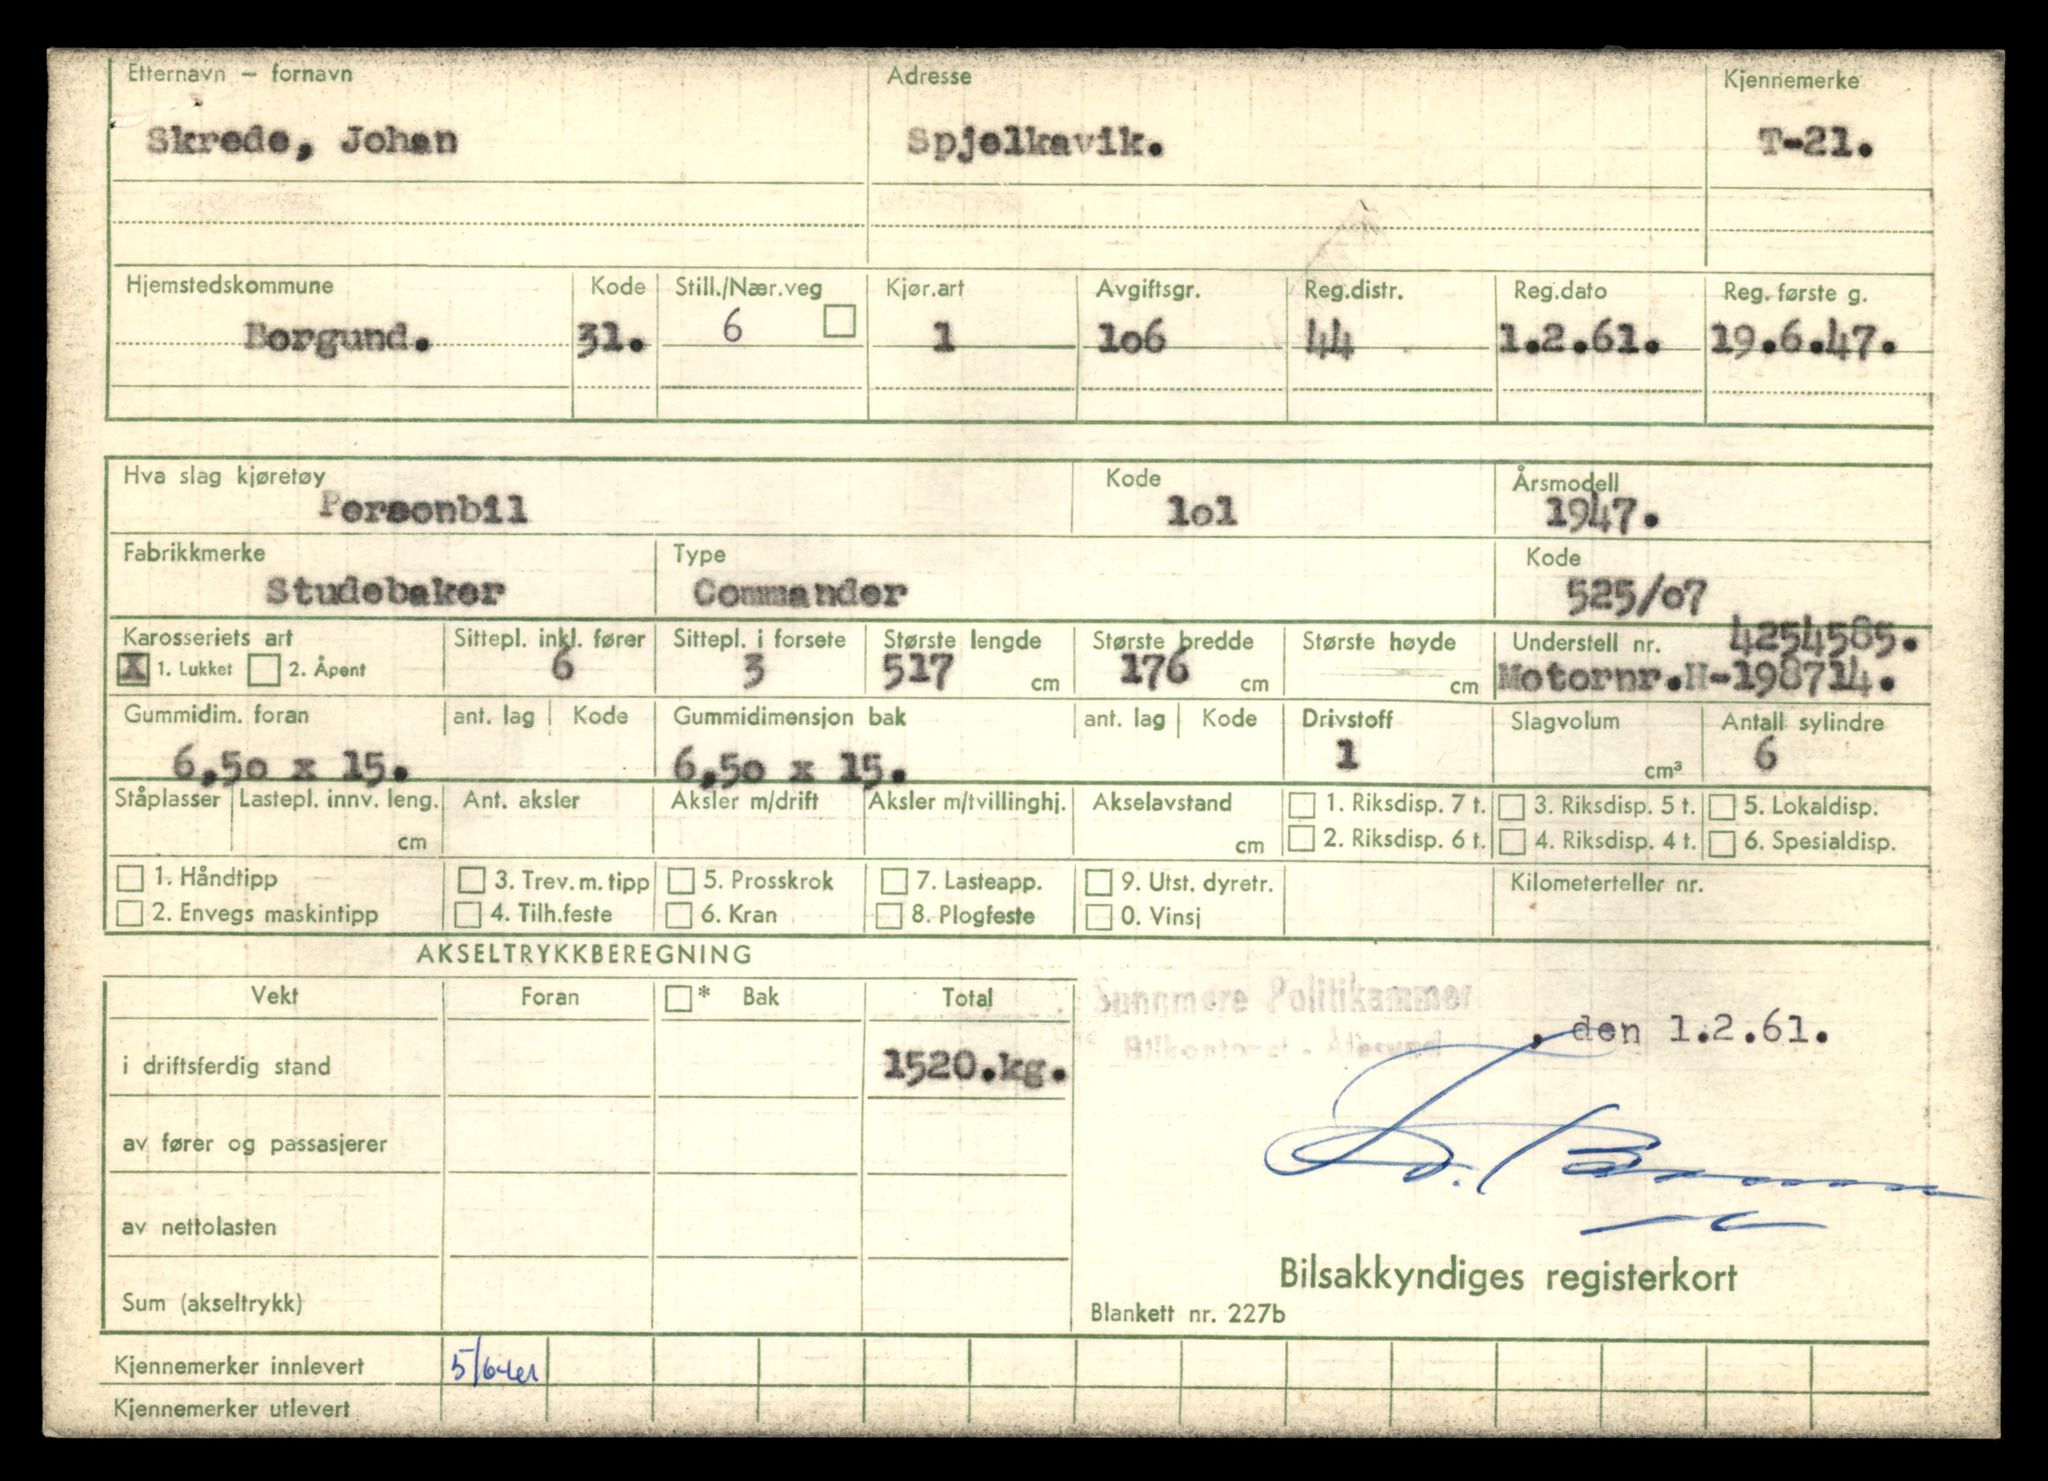 Etternavn – fornavn Adresse Kjennemerke
Skrede, Johan Spjelkavik. T-21.
Hjemstedskommune Kode Still./Nær.veg Kjør.art Avgiftsgr. Reg.distr. Reg.dato Reg. første g.
Borgund. 31. 6 1 1o6 44 1.2.61. 19.6.47.
Hva slag kjøretøy Kode Årsmodell
Personbil 1o1 1947.
Fabrikkmerke Type Kode
Studebaker Commander 525/o7
Karosseriets art Sittepl. inkl. fører Sittepl. i forsete Største lengde Største bredde Største høyde Understell nr. 4254585.
X 1. Lukket 2. Åpent 6 3 517 cm 176 cm cm Motornr.H-198714.
Gummidim. foran ant. lag Kode Gummidimensjon bak ant. lag Kode Drivstoff Slagvolum Antall sylindre
6,5o x 15. 6,5o x 15. 1 cm³ 6
Ståplasser Lastepl. innv. leng. Ant. aksler Aksler m/drift Aksler m/tvillinghj. Akselavstand 1. Riksdisp. 7 t. 3. Riksdisp. 5 t. 5. Lokaldisp.
cm cm 2. Riksdisp. 6 t. 4. Riksdisp. 4 t. 6. Spesialdisp.
1. Håndtipp 3. Trev. m. tipp 5. Prosskrok 7. Lasteapp. 9. Utst. dyretr. Kilometerteller nr.
2. Envegs maskintipp 4. Tilh.feste 6. Kran 8. Plogfeste 0. Vinsj
AKSELTRYKKBEREGNING
Vekt Foran * Bak Total
Sunnmøre Politikammer
, den 1.2.61.
Bilkontoret - Ålesund
i driftsferdig stand 1520.kg.
av fører og passasjerer
av nettolasten
Bilsakkyndiges registerkort
Sum (akseltrykk)
Blankett nr. 227b
Kjennemerker innlevert
Kjennemerker utlevert